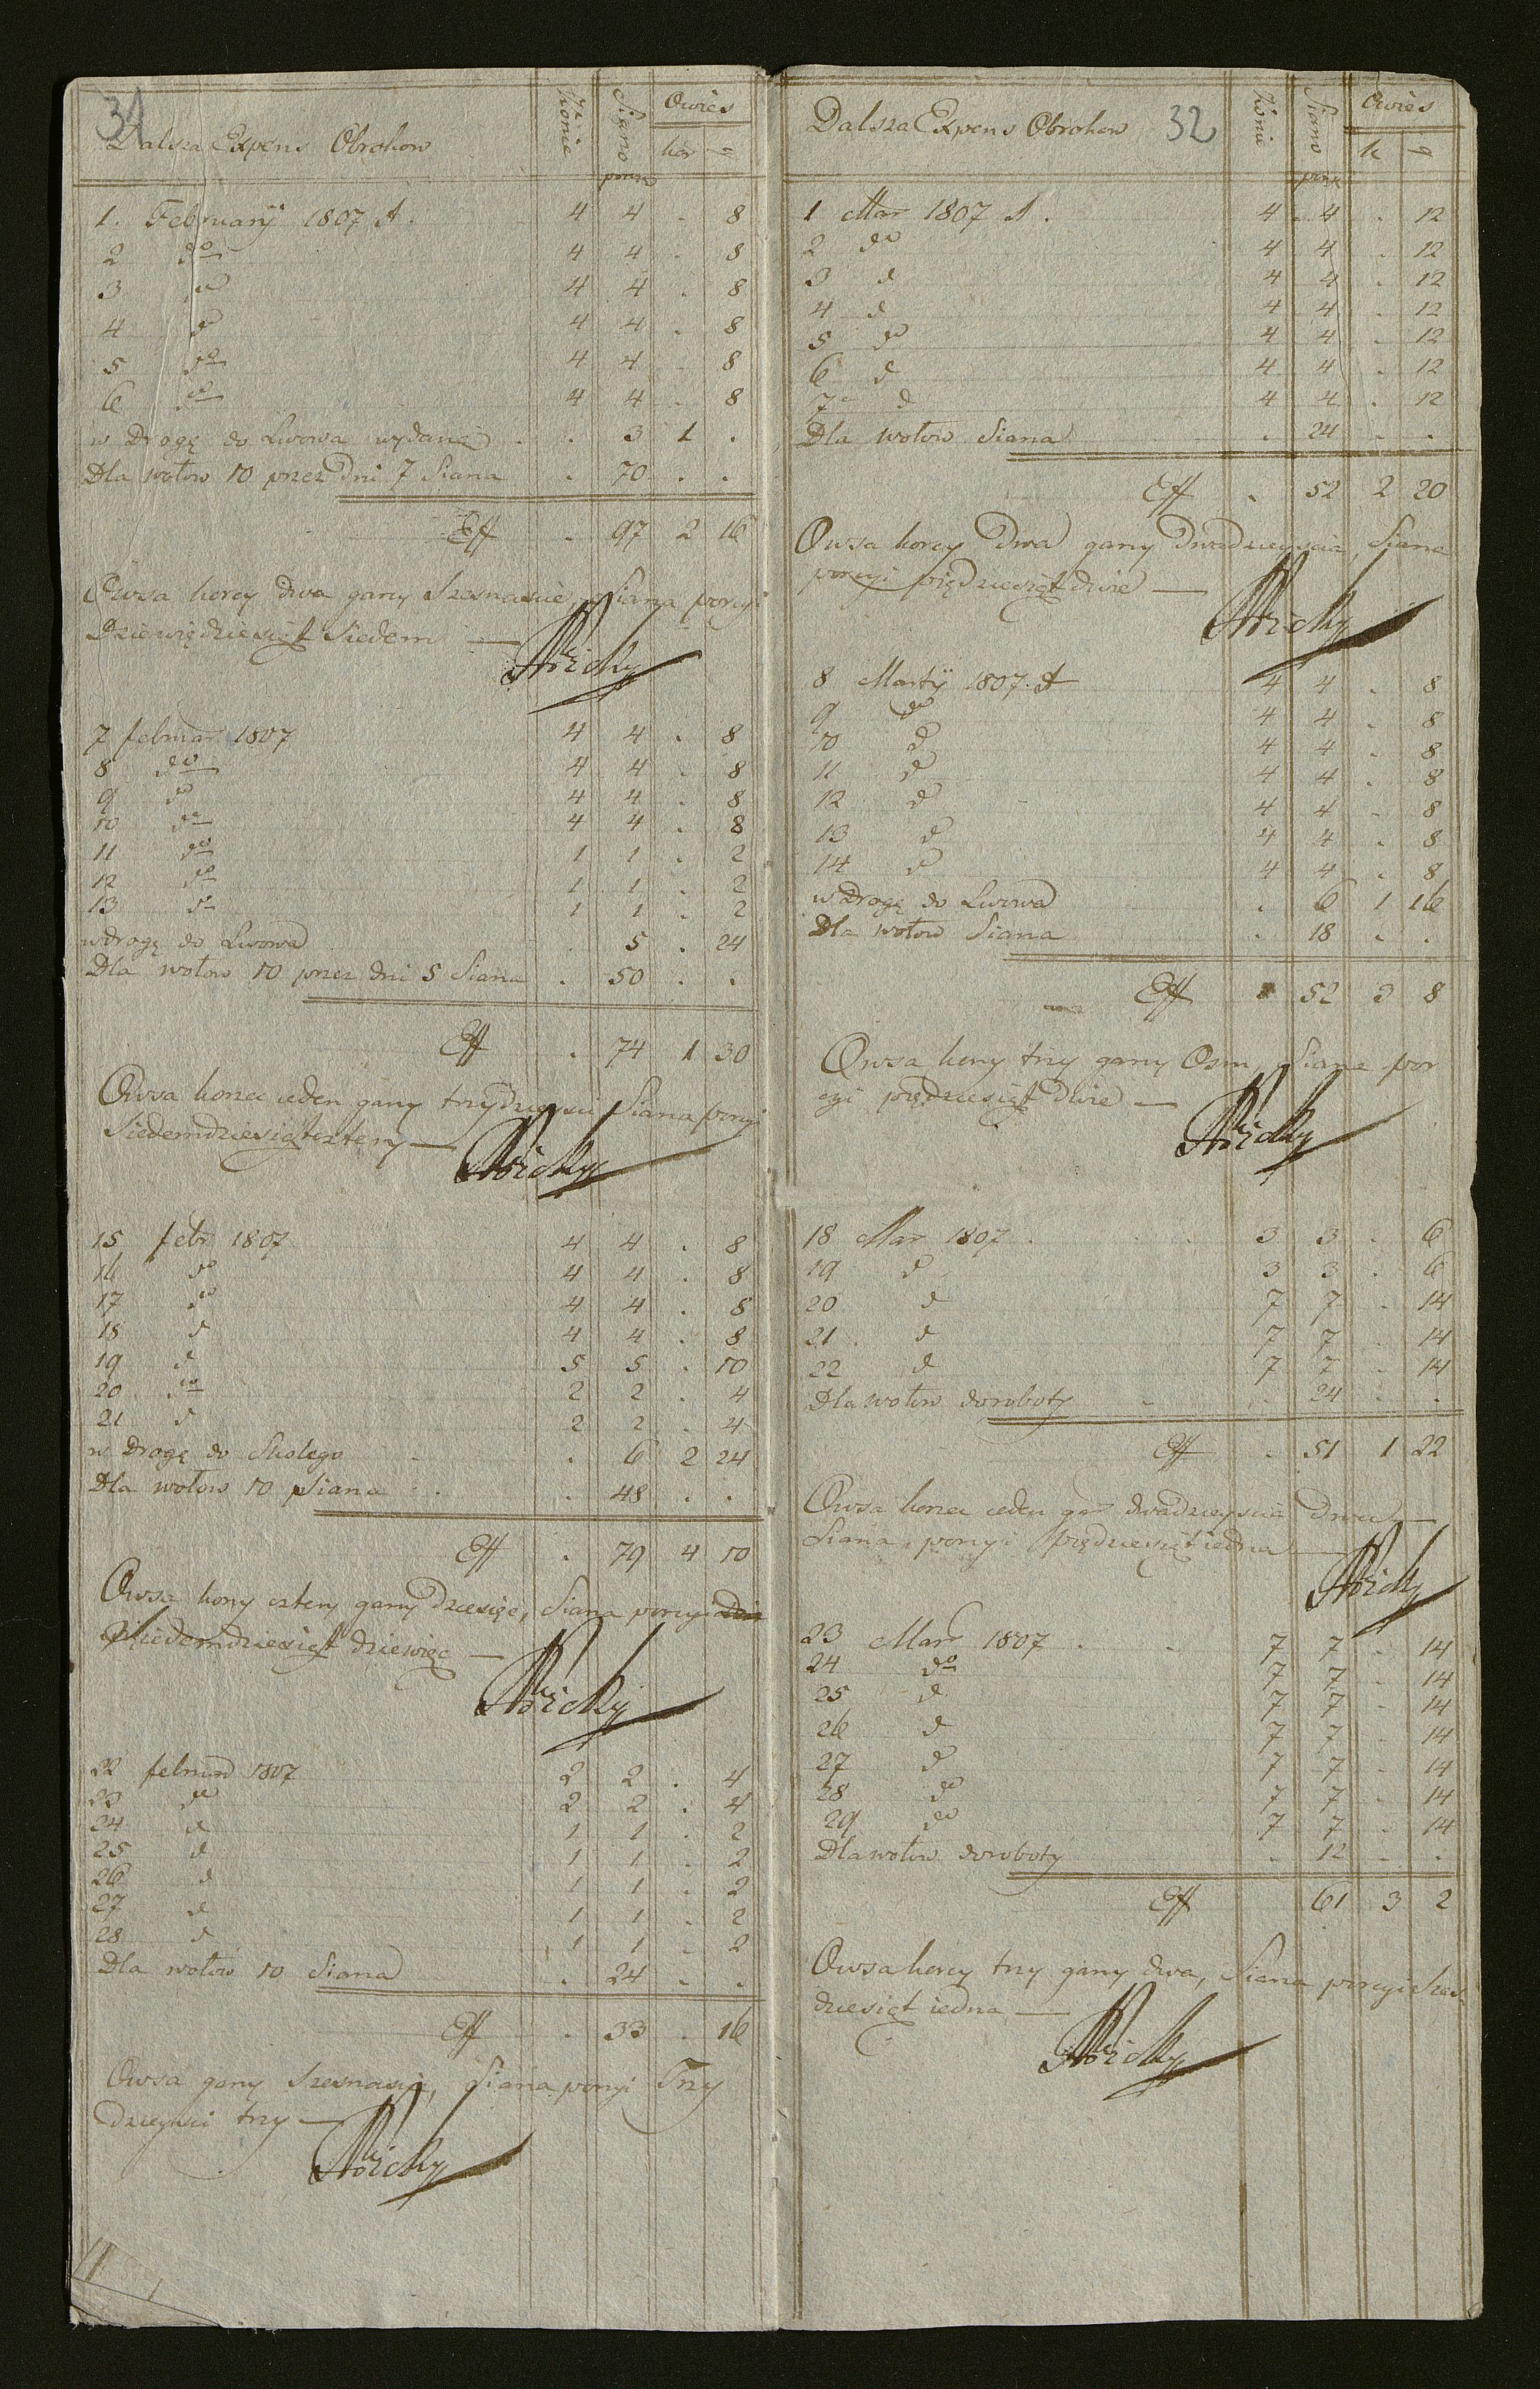 31
Dalsza Expens Obrokow Konie Siano porcu Owies kor g
1. February 1807 A. 4 4 . 8
2 do 4 4 . 8
3 do 4 4 . 8
4 d 4 4 . 8
5 do 4 4 . 8
6 do 4 4 . 8
w Drogę do Lwowa wydano . . 3 1 .
Dla wołow 10 przez Dni 7 Siana . 70 . .
Eff . 97 2 16
Owsa korcy dwa garcy Szesnascie, Siana porcyi
Dziewiędziesiąt Siedem —
7 februar 1807 4 4 . 8
8 do 4 4 . 8
9 do 4 4 . 8
10 do 4 4 . 8
11 do 1 1 . 2
12 do 1 1 . 2
13 do 1 1 . 2
w drogę do Lwowa . 5 . 24
Dla wołow 10 przez dni 5 Siana . 50 . .
Eff . 74 1 30
Owsa korzec ieden garcy trzydziesci Siana porcyi
Siedemdziesiąt cztery —
15 febr 1807 4 4 . 8
16 do 4 4 . 8
17 do 4 4 . 8
18 d 4 4 . 8
19 d 5 5 . 10
20 do 2 2 . 4
21 d 2 2 . 4
w Drogę do Skolego . 6 2 24
Dla wołow 10 Siana . . 48 . .
Eff . 79 4 10
Owsa korcy cztery garcy Dziesięc, Siana porcyi
Siedemdziesiąt dziewięc —
22 februar 1807 2 2 . 4
23 do 2 2 . 4
24 d 1 1 . 2
25 d 1 1 . 2
26 d 1 1 . 2
27 d 1 1 . 2
28 d 1 1 . 2
Dla wołow 10 Siana . 24 . .
Eff . 33 . 16
Owsa garcy Szesnascie, Siana porcyi Trzy
dziesci trzy —
Dalsza Expens Obrokow 32 Konie Siano porc Owies k g
1 Mar 1807 A. 4 4 . 12
2 do 4 4 . 12
3 d 4 4 . 12
4 d 4 4 . 12
5 do 4 4 . 12
6 d 4 4 . 12
7 d 4 4 . 12
Dla wołow Siana . 24 . .
Eff . 52 2 20
Owsa korcy Dwa garcy Dwadziescia, Siana
porcyi pięDziesiąt dwie —
8 Martij 1807. A 4 4 . 8
9 do 4 4 . 8
10 d 4 4 . 8
11 d 4 4 . 8
12 d 4 4 . 8
13 d 4 4 . 8
14 d 4 4 . 8
w Drogę do Lwowa . 6 1 16
Dla wołow Siana . 18 . .
Eff 52 3 8
Owsa korcy trzy garcy Osm, Siana por
cyi pięDziesiąt Dwie —
18 Mar 1807 . 3 3 . 6
19 d 3 3 . 6
20 d 7 7 . 14
21 d 7 7 . 14
22 d 7 7 . 14
Dla wołow do roboty . 24 . .
Eff . 51 1 22
Owsa korzec ieden gar dwadziescia Dwa —
Siana porcyi pięDziesiąt iedna —
23 Mar 1807 . 7 7 . 14
24 do 7 7 . 14
25 d 7 7 . 14
26 d 7 7 . 14
27 d 7 7 . 14
28 do 7 7 . 14
29 do 7 7 . 14
Dla wołow do roboty . 12 . .
Eff 61 3 2
Owsa korcy trzy garcy dwa, Siana porcyi szesc
dziesiąt iedna —